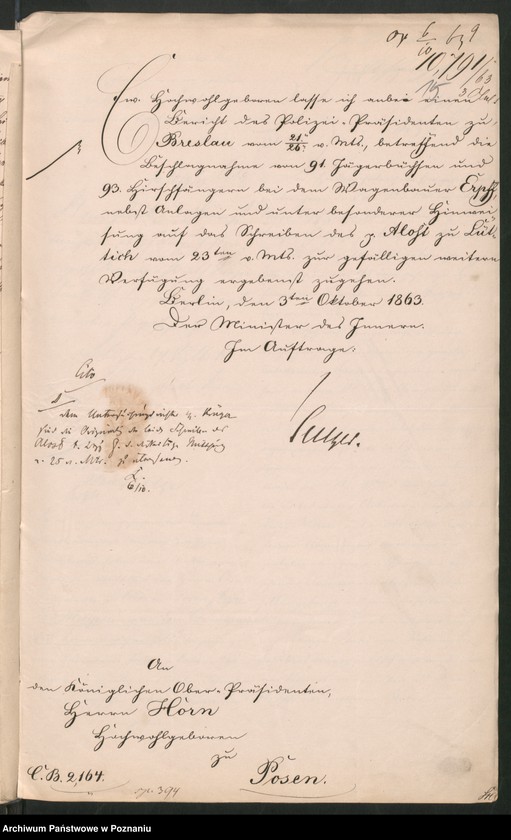 pr 6/10 63 9
10,791/63
Ew. Hochwohlgeboren lasse ich anbei einen
Bericht des Polizei-Präsidenten zu
Breslau vom 21/26 v. Mts., betreffend die
Beschlagnahme von 91 Jägerbüchsen und
93. Hirschfängern bei dem Wagenbauer Erpff,
nebst Anlagen und unter besonderer Hinwei-
sung auf das Schreiben des p. Alost zu Lüt-
tich vom 23ten v. Mts. zur gefälligen weitern
Verfügung ergebenst zugehen.
Berlin, den 3ten Oktober 1863.
Der Minister des Innern.
Im Auftrage:
Cito
Sulzer.
dem Untersuchungsrichter H. Krüger
für die Originale der beide Schreiben des
Alost
v. 25 v. Mts.
6/10.
An
den Königlichen Ober-Präsidenten,
Herrn Horn
Hochwohlgeboren
zu
Posen.
C. B. 2,164.
sp. 394
Archiwum Państwowe w Poznaniu